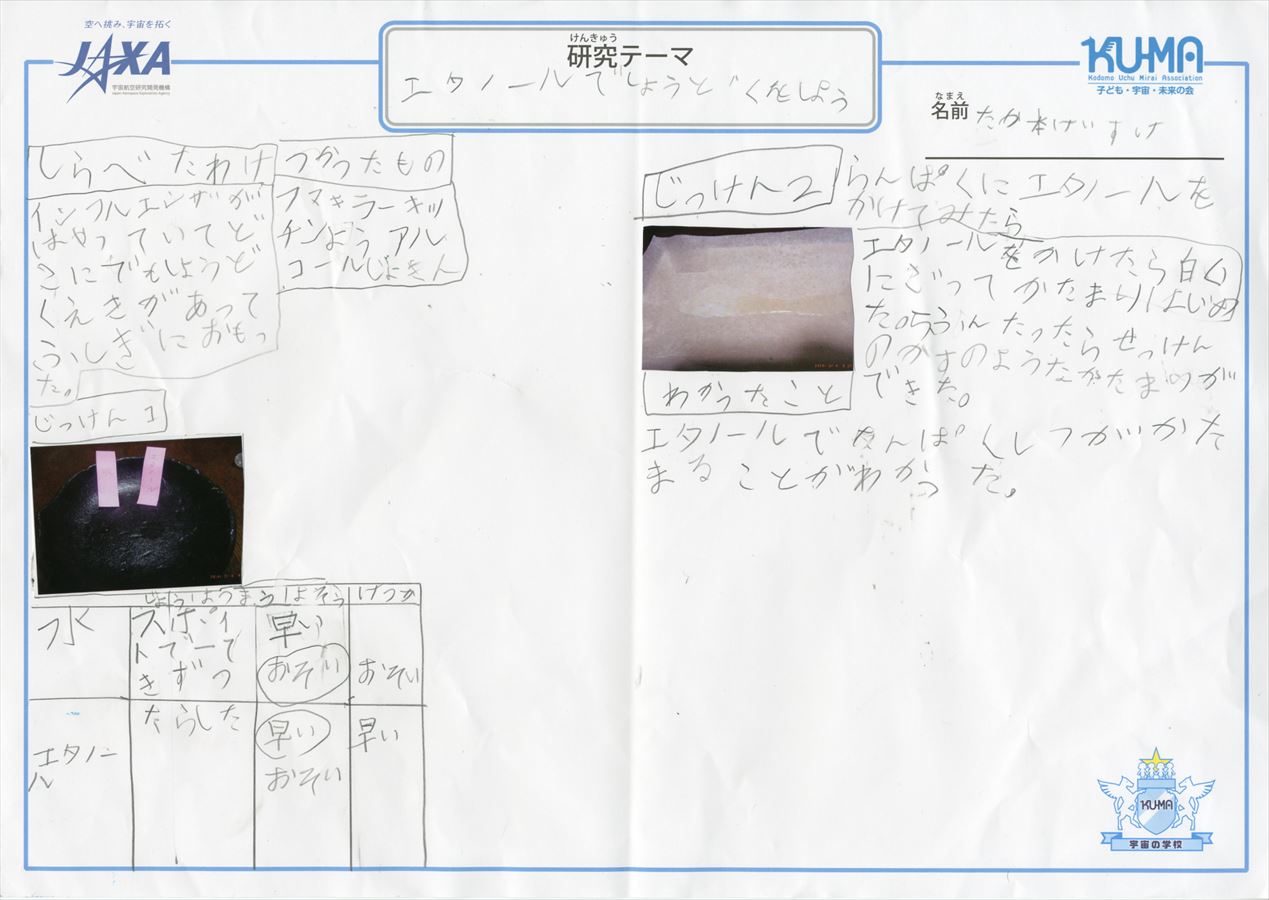 空へ挑み、宇宙を拓く
JAXA
宇宙航空研究開発機構
Japan Aerospace Exploration Agency
けんきゅう
研究テーマ
エタノールでしょうどくをしよう
KU-MA
Kodomo Uchu Mirai Association
子ども・宇宙・未来の会
なまえ
名前 たか本けいすけ
しらべたわけ
インフルエンザが
はやっていてど
こにでもしょうど
くえきがあって
ふしぎにおもっ
た。
つかったもの
フマキラーキッ
チンようアル
コールじょきん
じっけん1
よそう けつか
水
スポイ
トで一て
きずつ
たらした
早い
おそい
おそい
エタノー
ル
早い
おそい
早い
じっけん2
らんぱくにエタノールを
かけてみたら
エタノールをかけたら白く
にごってかたまりはじめ
た。5ふんたったらせっけん
のかすのようなかたまりが
できた。
わかったこと
エタノールでたんぱくしつがかた
まることがわかった。
KU-MA
宇宙の学校